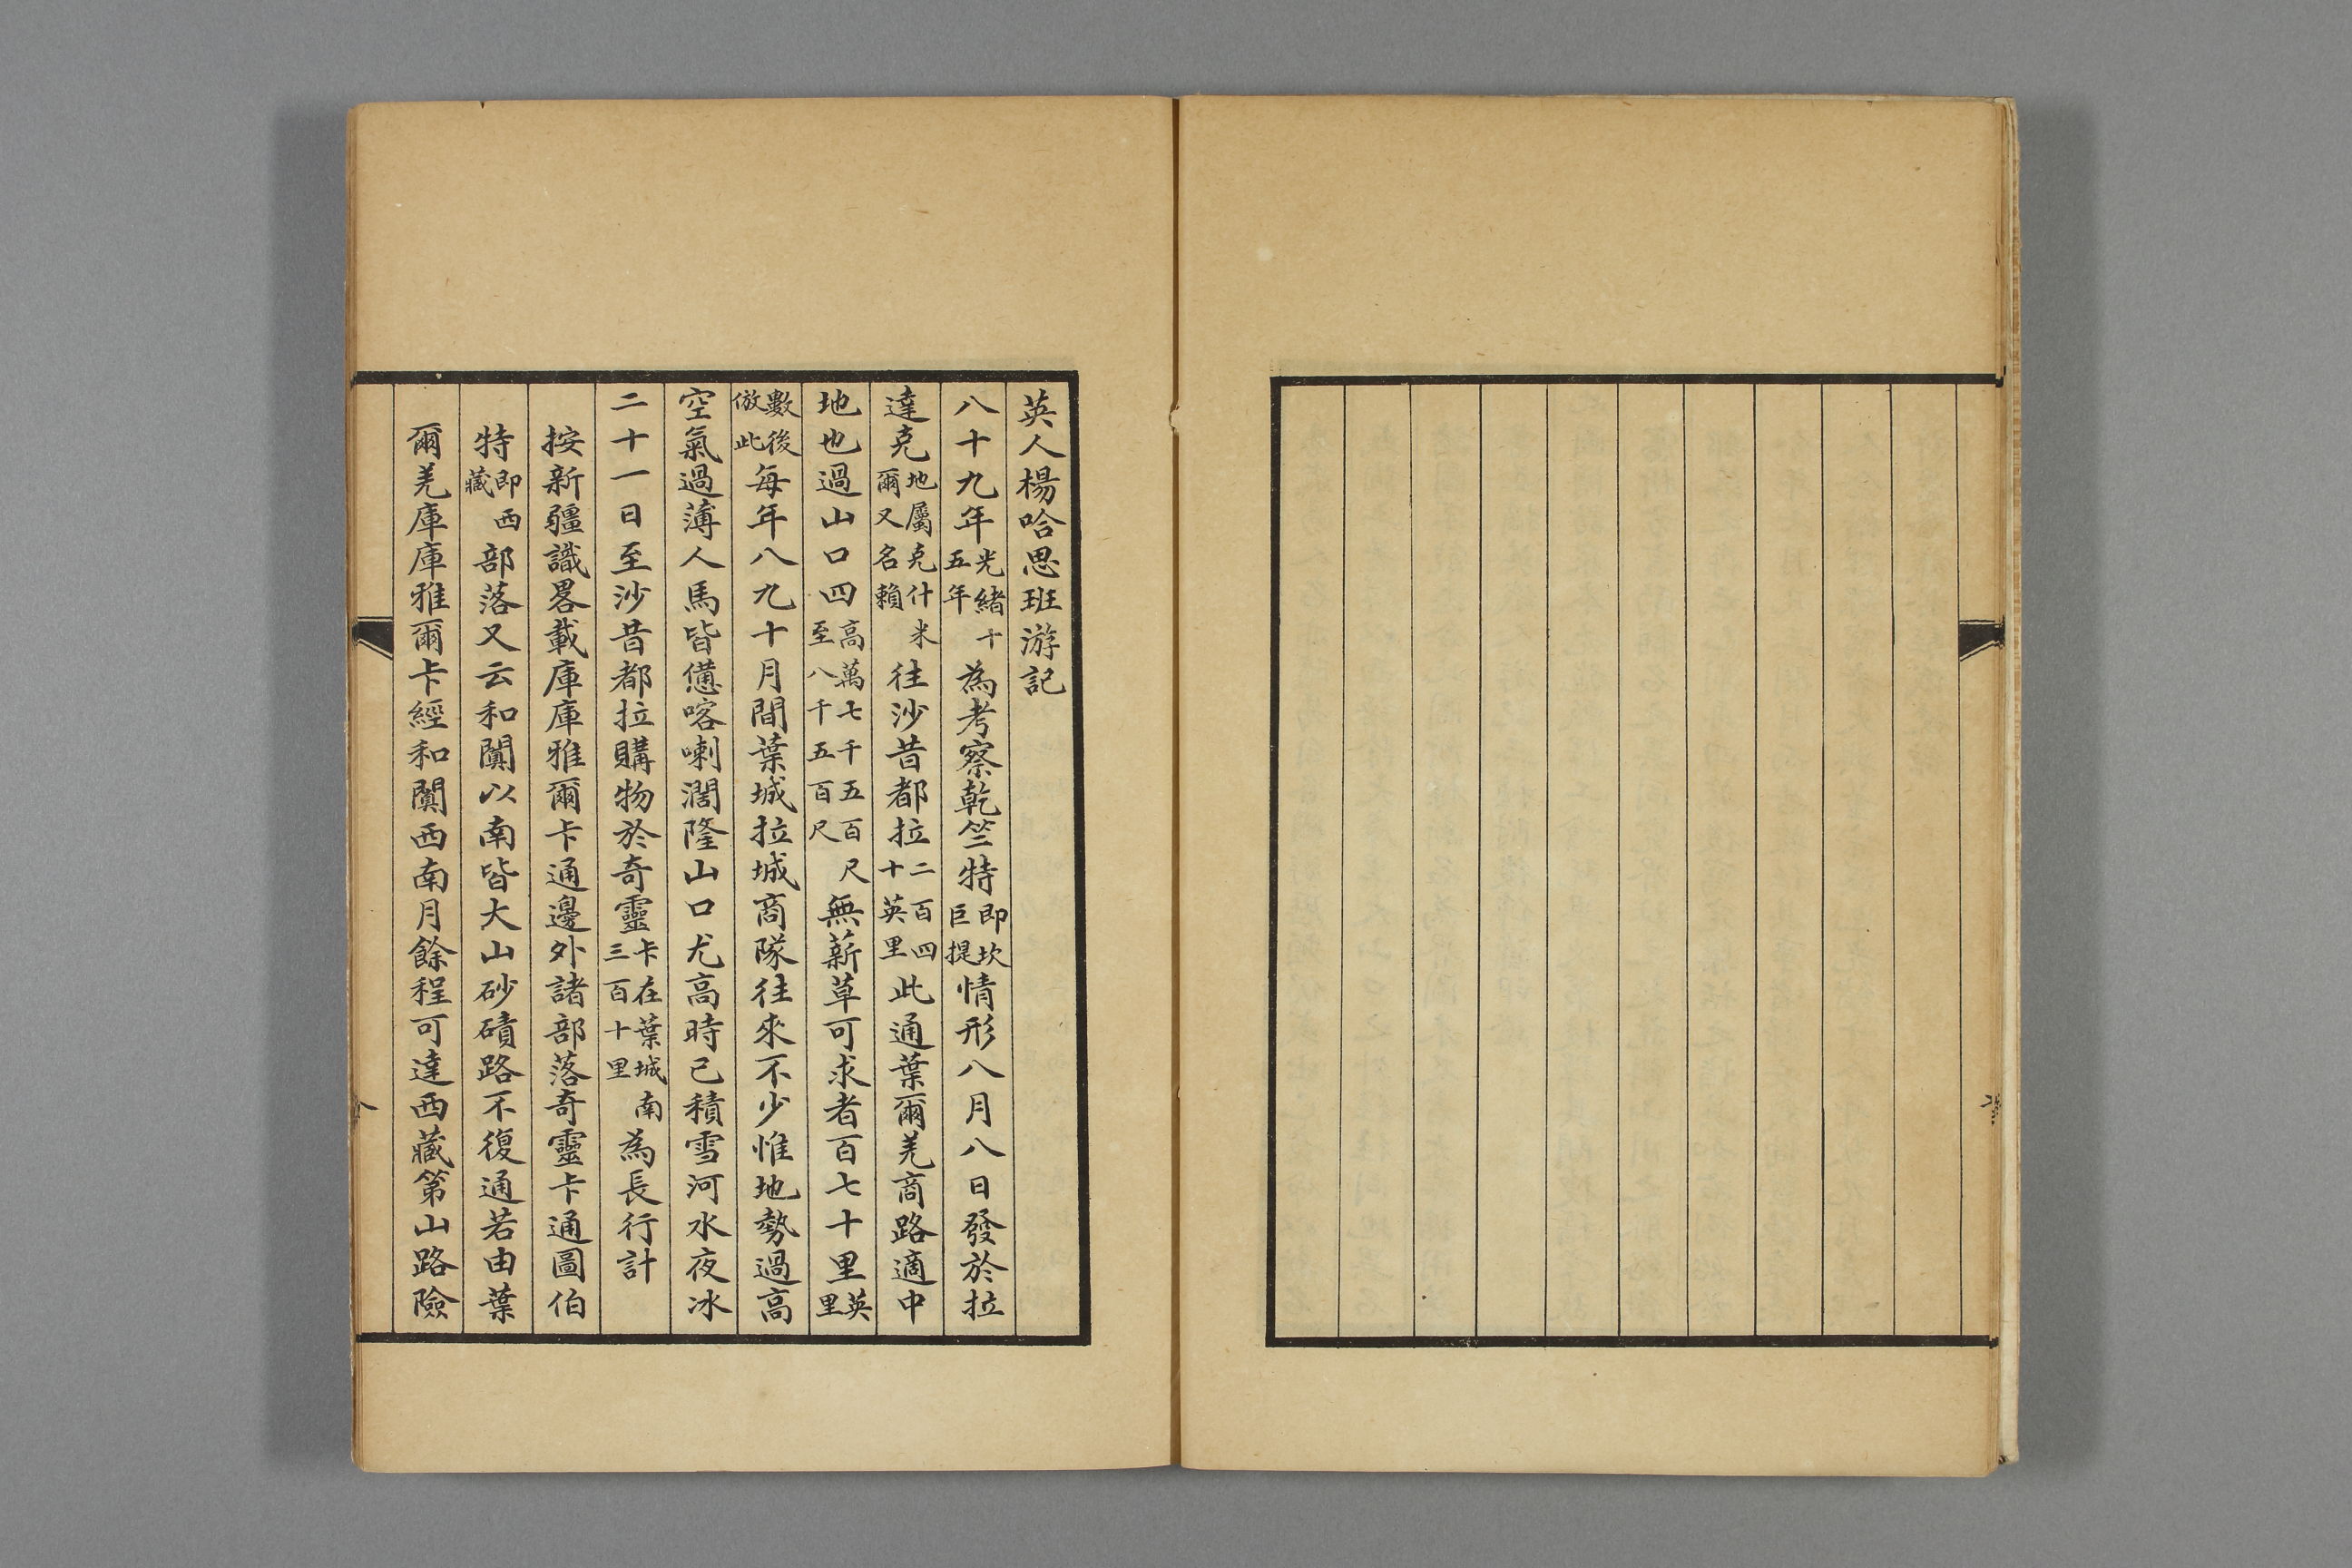 英人楊哈思班游記
八十九年光緒十五年為考察乾竺特即坎巨提情形八月八日發於拉
達克地屬克什米爾又名賴往沙昔都拉二百四十英里此通葉爾羌商路適中
地也過山口四高萬七千五百尺至八千五百尺無薪草可求者百七十里英里
數後倣此每年八九十月間葉城拉城商隊往來不少惟地勢過高
空氣過薄人馬皆憊喀喇濶隆山口尤高時已積雪河水夜冰
二十一日至沙昔都拉購物於奇靈卡在葉城南三百十里為長行計
按新疆識畧載庫庫雅爾卡通邊外諸部落奇靈卡通圖伯
特即西藏部落又云和闐以南皆大山砂磧路不復通若由葉
爾羌庫庫雅爾卡經和闐西南月餘程可達西藏第山路險